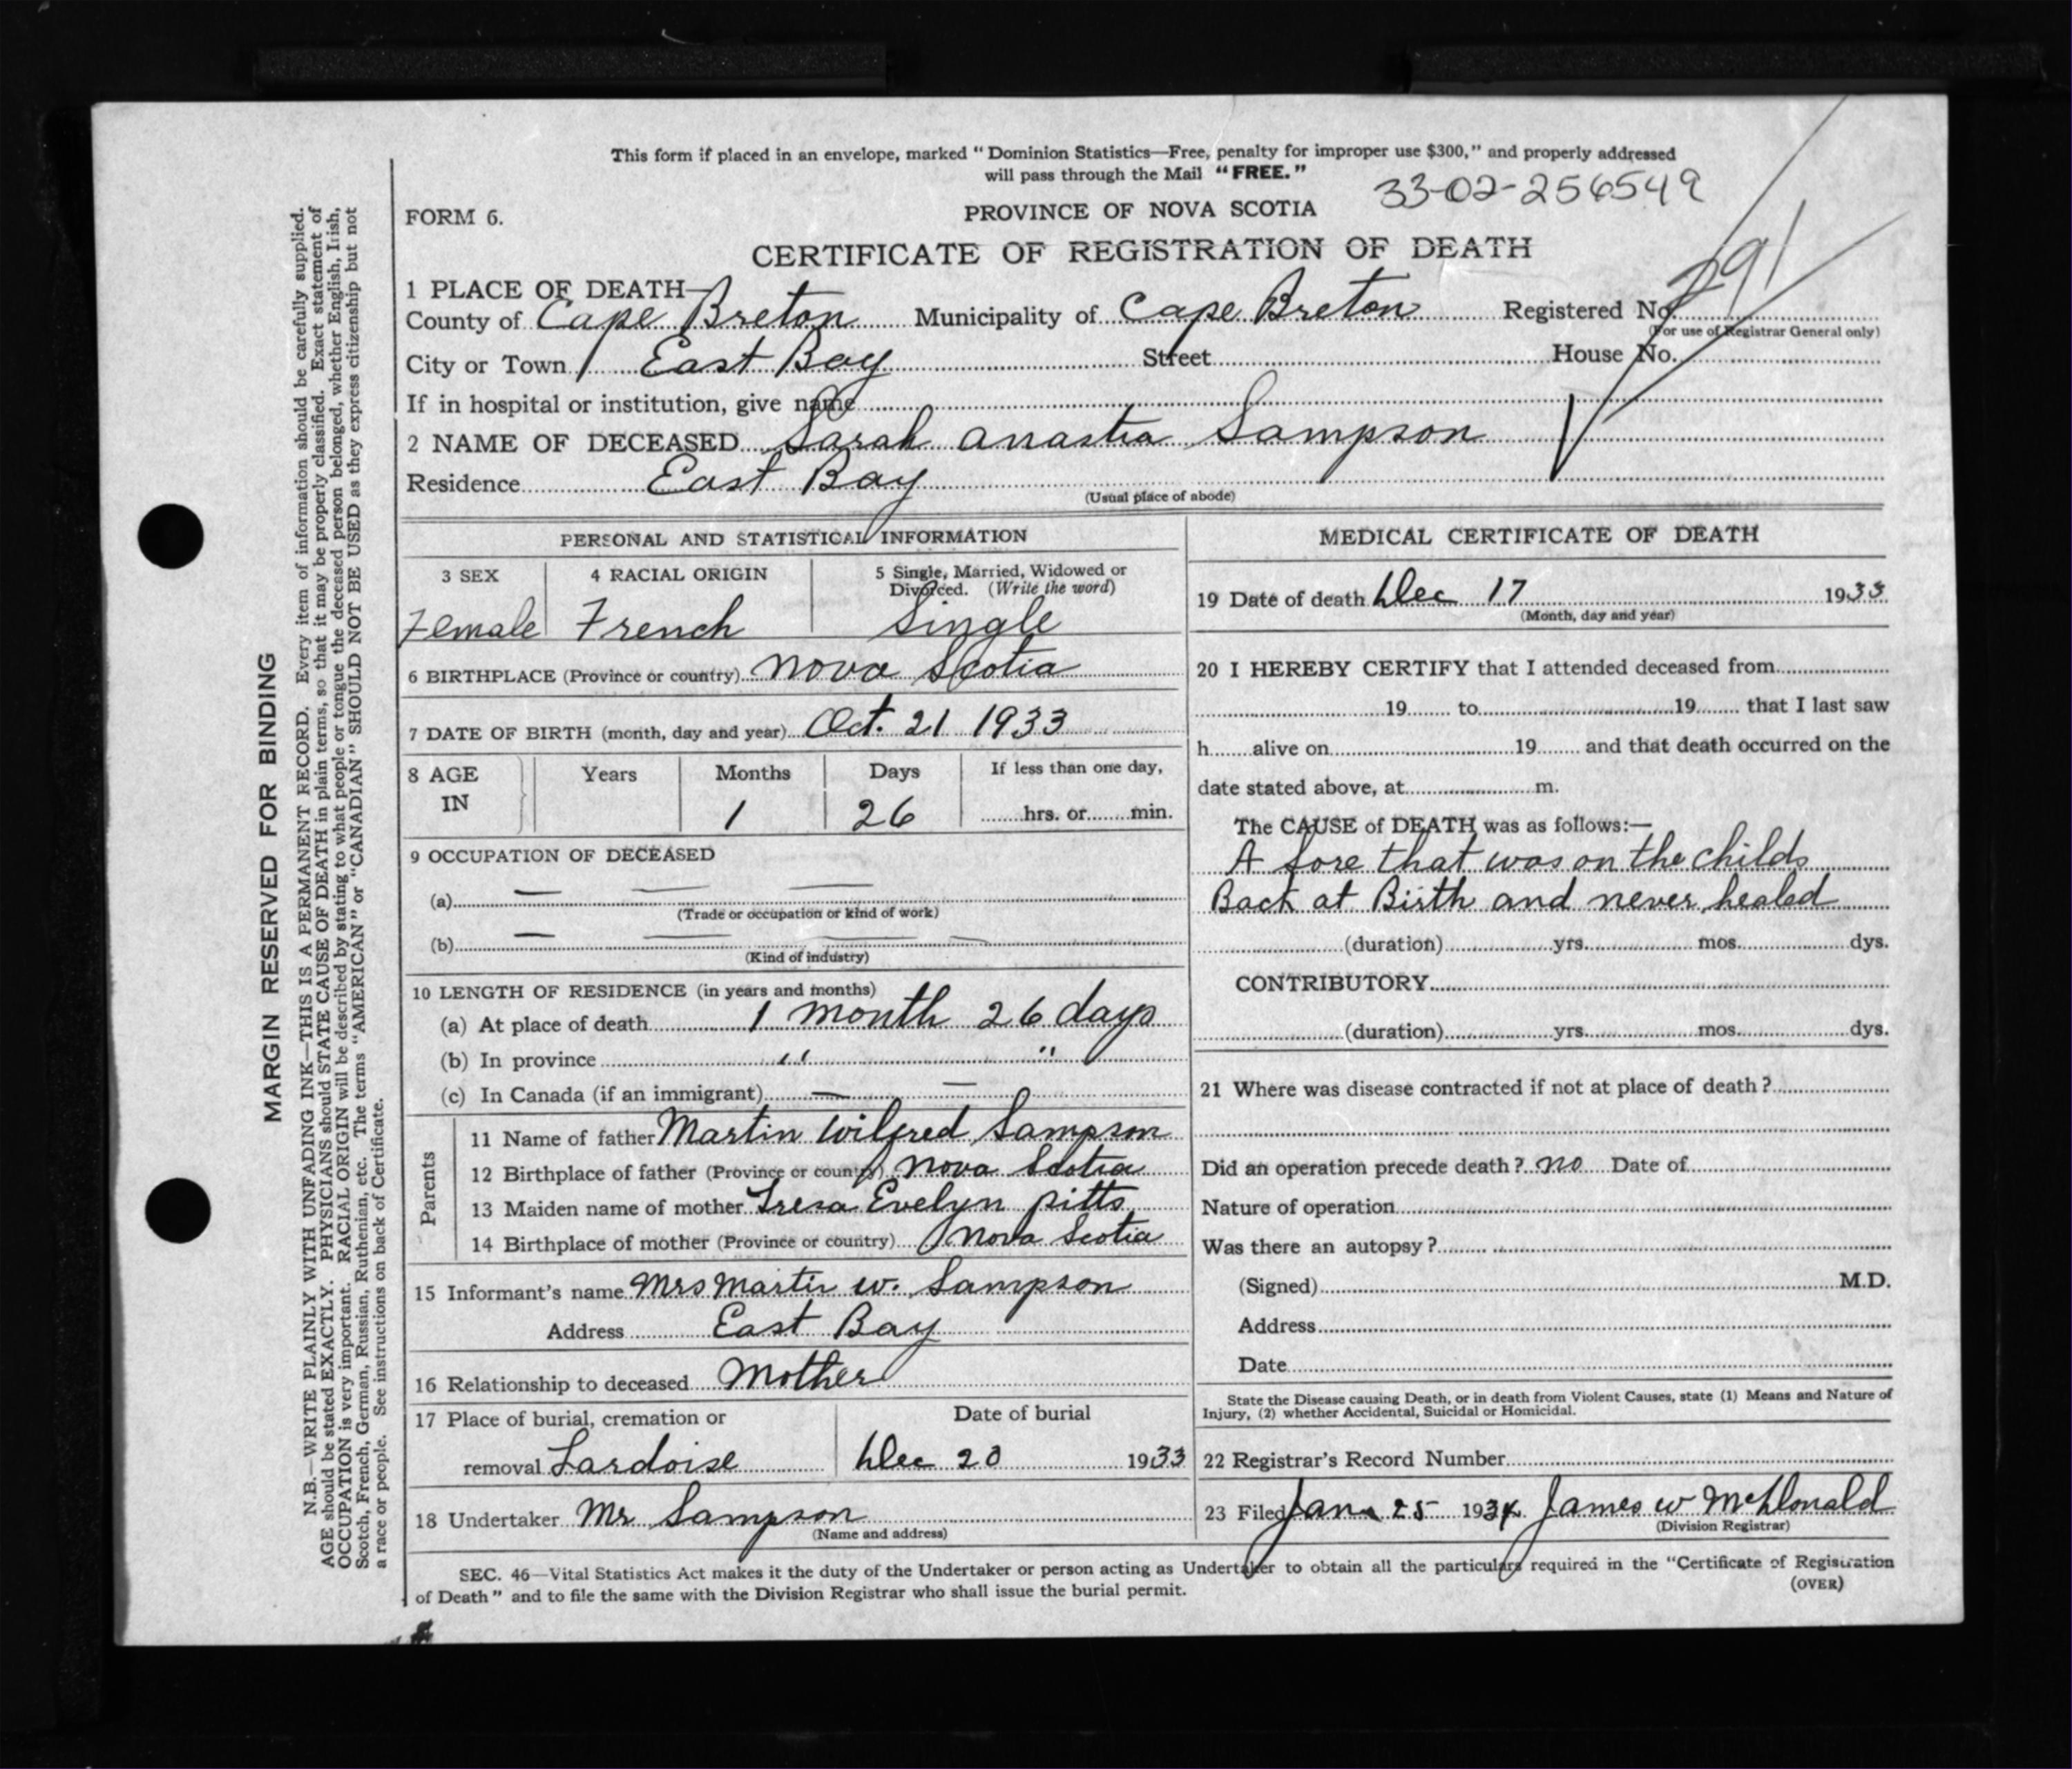 This form if placed in an envelope, marked "Dominion Statistics—Free, penalty for improper use $300," and properly addressed
will pass through the Mail "FREE."
33-02-256549
FORM 6.
PROVINCE OF NOVA SCOTIA
CERTIFICATE OF REGISTRATION OF DEATH
1 PLACE OF DEATH—
County of Cape Breton Municipality of Cape Breton Registered No. 291
(For use of Registrar General only)
City or Town East Bay Street House No.
If in hospital or institution, give name
2 NAME OF DECEASED Sarah Anastia Sampson
Residence East Bay
(Usual place of abode)
PERSONAL AND STATISTICAL INFORMATION
3 SEX 4 RACIAL ORIGIN 5 Single, Married, Widowed or
Divorced. (Write the word)
Female French Single
6 BIRTHPLACE (Province or country) Nova Scotia
7 DATE OF BIRTH (month, day and year) Oct. 21 1933
8 AGE IN Years Months Days If less than one day,
1 26 hrs. or min.
9 OCCUPATION OF DECEASED
(a) — — —
(Trade or occupation or kind of work)
(b) — — — —
(Kind of industry)
10 LENGTH OF RESIDENCE (in years and months)
(a) At place of death 1 month 26 days
(b) In province " "
(c) In Canada (if an immigrant) — —
Parents
11 Name of father Martin Wilfred Sampson
12 Birthplace of father (Province or country) Nova Scotia
13 Maiden name of mother Tresa Evelyn pitts
14 Birthplace of mother (Province or country) Nova Scotia
15 Informant's name Mrs Martin W. Sampson
Address East Bay
16 Relationship to deceased Mother
17 Place of burial, cremation or Date of burial
removal Lardoise Dec 20 1933
18 Undertaker Mr Sampson
(Name and address)
MEDICAL CERTIFICATE OF DEATH
19 Date of death Dec 17 1933
(Month, day and year)
20 I HEREBY CERTIFY that I attended deceased from
19 to 19 that I last saw
h alive on 19 and that death occurred on the
date stated above, at m.
The CAUSE of DEATH was as follows:—
A sore that was on the childs
Back at Birth and never healed
(duration) yrs. mos. dys.
CONTRIBUTORY
(duration) yrs. mos. dys.
21 Where was disease contracted if not at place of death?
Did an operation precede death? no Date of
Nature of operation
Was there an autopsy?
(Signed) M.D.
Address
Date
State the Disease causing Death, or in death from Violent Causes, state (1) Means and Nature of
Injury, (2) whether Accidental, Suicidal or Homicidal.
22 Registrar's Record Number
23 Filed Jan 25 1934 James W McDonald
(Division Registrar)
SEC. 46—Vital Statistics Act makes it the duty of the Undertaker or person acting as Undertaker to obtain all the particulars required in the "Certificate of Registration
of Death" and to file the same with the Division Registrar who shall issue the burial permit.
(OVER)
MARGIN RESERVED FOR BINDING
N.B.—WRITE PLAINLY WITH UNFADING INK—THIS IS A PERMANENT RECORD. Every item of information should be carefully supplied.
AGE should be stated EXACTLY. PHYSICIANS should STATE CAUSE OF DEATH in plain terms, so that it may be properly classified. Exact statement of
OCCUPATION is very important. RACIAL ORIGIN will be described by stating to what people or tongue the deceased person belonged, whether English, Irish,
Scotch, French, German, Russian, Ruthenian, etc. The terms "AMERICAN" or "CANADIAN" SHOULD NOT BE USED as they express citizenship but not
a race or people. See instructions on back of Certificate.